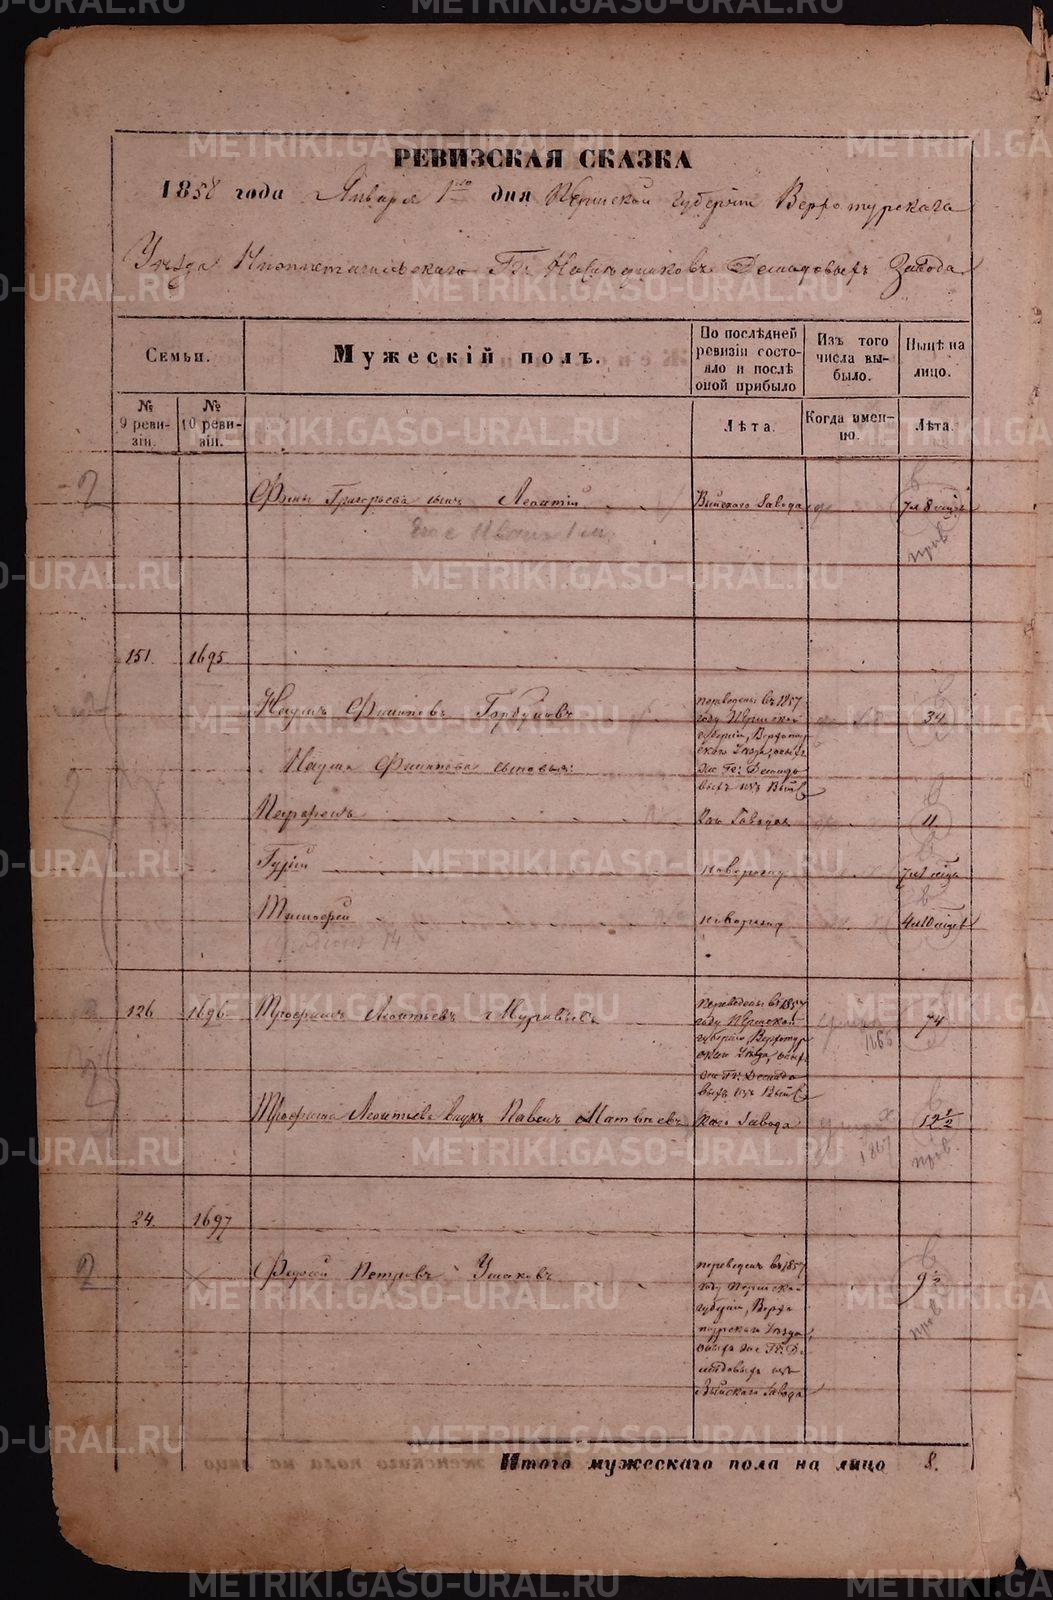 РЕВИЗСКАЯ СКАЗКА
1858 года Января 1го дня Пермской губернiи Верхотурскаго
Уѣзда Нижнетагильскаго Гг. Наслѣдниковъ Демидовыхъ Завода
Семьи.
Мужескiй полъ.
По послѣдней ревизiи состояло и послѣ оной прибыло
Изъ того числа выбыло.
Нынѣ на лицо.
№ 9 ревизiи.
№ 10 ревизiи.
Лѣта.
Когда именно.
Лѣта.
2
Григорьева сынъ
Выйскаго Завода
7 м 8
прив
151.
1695
Наумъ Филиповъ Горбуновъ
переведены въ 1857
году Пермской
губернiи, Верхотур
скаго Уѣзда, оныхъ
же Гг: Демидо
выхъ изъ Вый
34
Наума Филипова сыновья:
Парфенъ
Завода
11
Гурiй
новорожд
Тимофей
новорожд
126
1696
Трофимъ Леонтьевъ Муравьевъ
переведены въ 1857
году Пермской
губернiи, Верхотур
скаго Уѣзда, оныхъ
же Гг: Демидо
выхъ изъ Вый
74
Трофима Леонтьева внукъ Павелъ Матвѣевъ
скаго Завода
1867
12 1/2
прив.
24.
1697
2
Федосей Петровъ Ушаковъ
переведенъ въ 1857
году Пермской
губернiи, Верхо
турскаго Уѣзда,
оныхъ же Гг: Де
мидовыхъ изъ
Выйскаго Завода
9 1/2
прив
Итого мужескаго пола на лицо 8.
METRIKI.GASO-URAL.RU